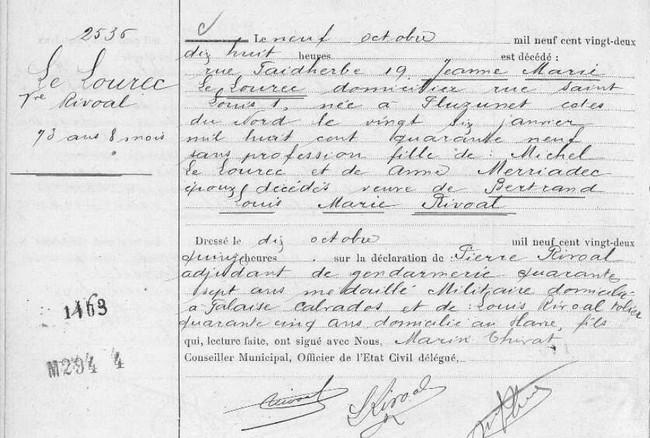 2535
Le Lourec
Vve Rivoal
73 ans 8 mois
1463
M294 4
Le neuf octobre mil neuf cent vingt-deux
dix huit heures est décédé :
rue Faidherbe 19, Jeanne Marie
Le Lourec domiciliée rue Saint
Louis 1, née à Pluzunet cotes
du Nord le vingt six janvier
mil huit cent quarante neuf
sans profession fille de : Michel
Le Lourec et de Anne Merriadec
époux décédés veuve de Bertrand
Louis Marie Rivoal
Dressé le dix octobre mil neuf cent vingt-deux
quinze heures . sur la déclaration de Pierre Rivoal
adjudant de gendarmerie quarante
sept ans medaillé Militaire domicilié
à Falaise Calvados et de : Louis Rivoal
quarante cinq ans domicilié au Havre, fils
qui, lecture faite, ont signé avec Nous, Marin
Conseiller Municipal, Officier de l'Etat Civil délégué,
Rivoal
L Rivoal